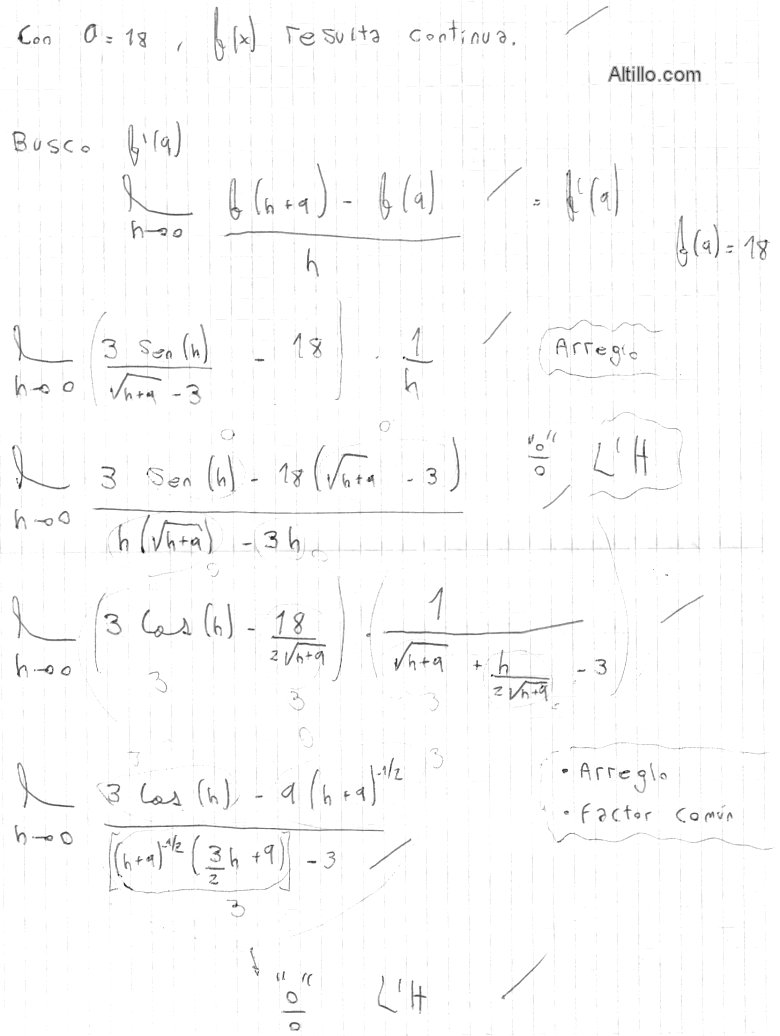 Con a = 18 , f(x) resulta continua.
Altillo.com
Busco f'(9)
lim h→0 (f(h+9) - f(9)) / h = f'(9)
f(9) = 18
lim h→0 (3 Sen(h) / (√(h+9) - 3) - 18) · 1/h
Arreglo
lim h→0 (3 Sen(h) - 18(√(h+9) - 3)) / (h(√(h+9)) - 3h)
"0"/0 L'H
lim h→0 (3 Cos(h) - 18/(2√(h+9))) · (1 / (√(h+9) + h/(2√(h+9)) - 3))
3 3 3
lim h→0 (3 Cos(h) - 9(h+9)^-1/2) / ([(h+9)^-1/2 (3/2 h + 9)] - 3)
3
• Arreglo
• Factor común
"0"/0 L'H